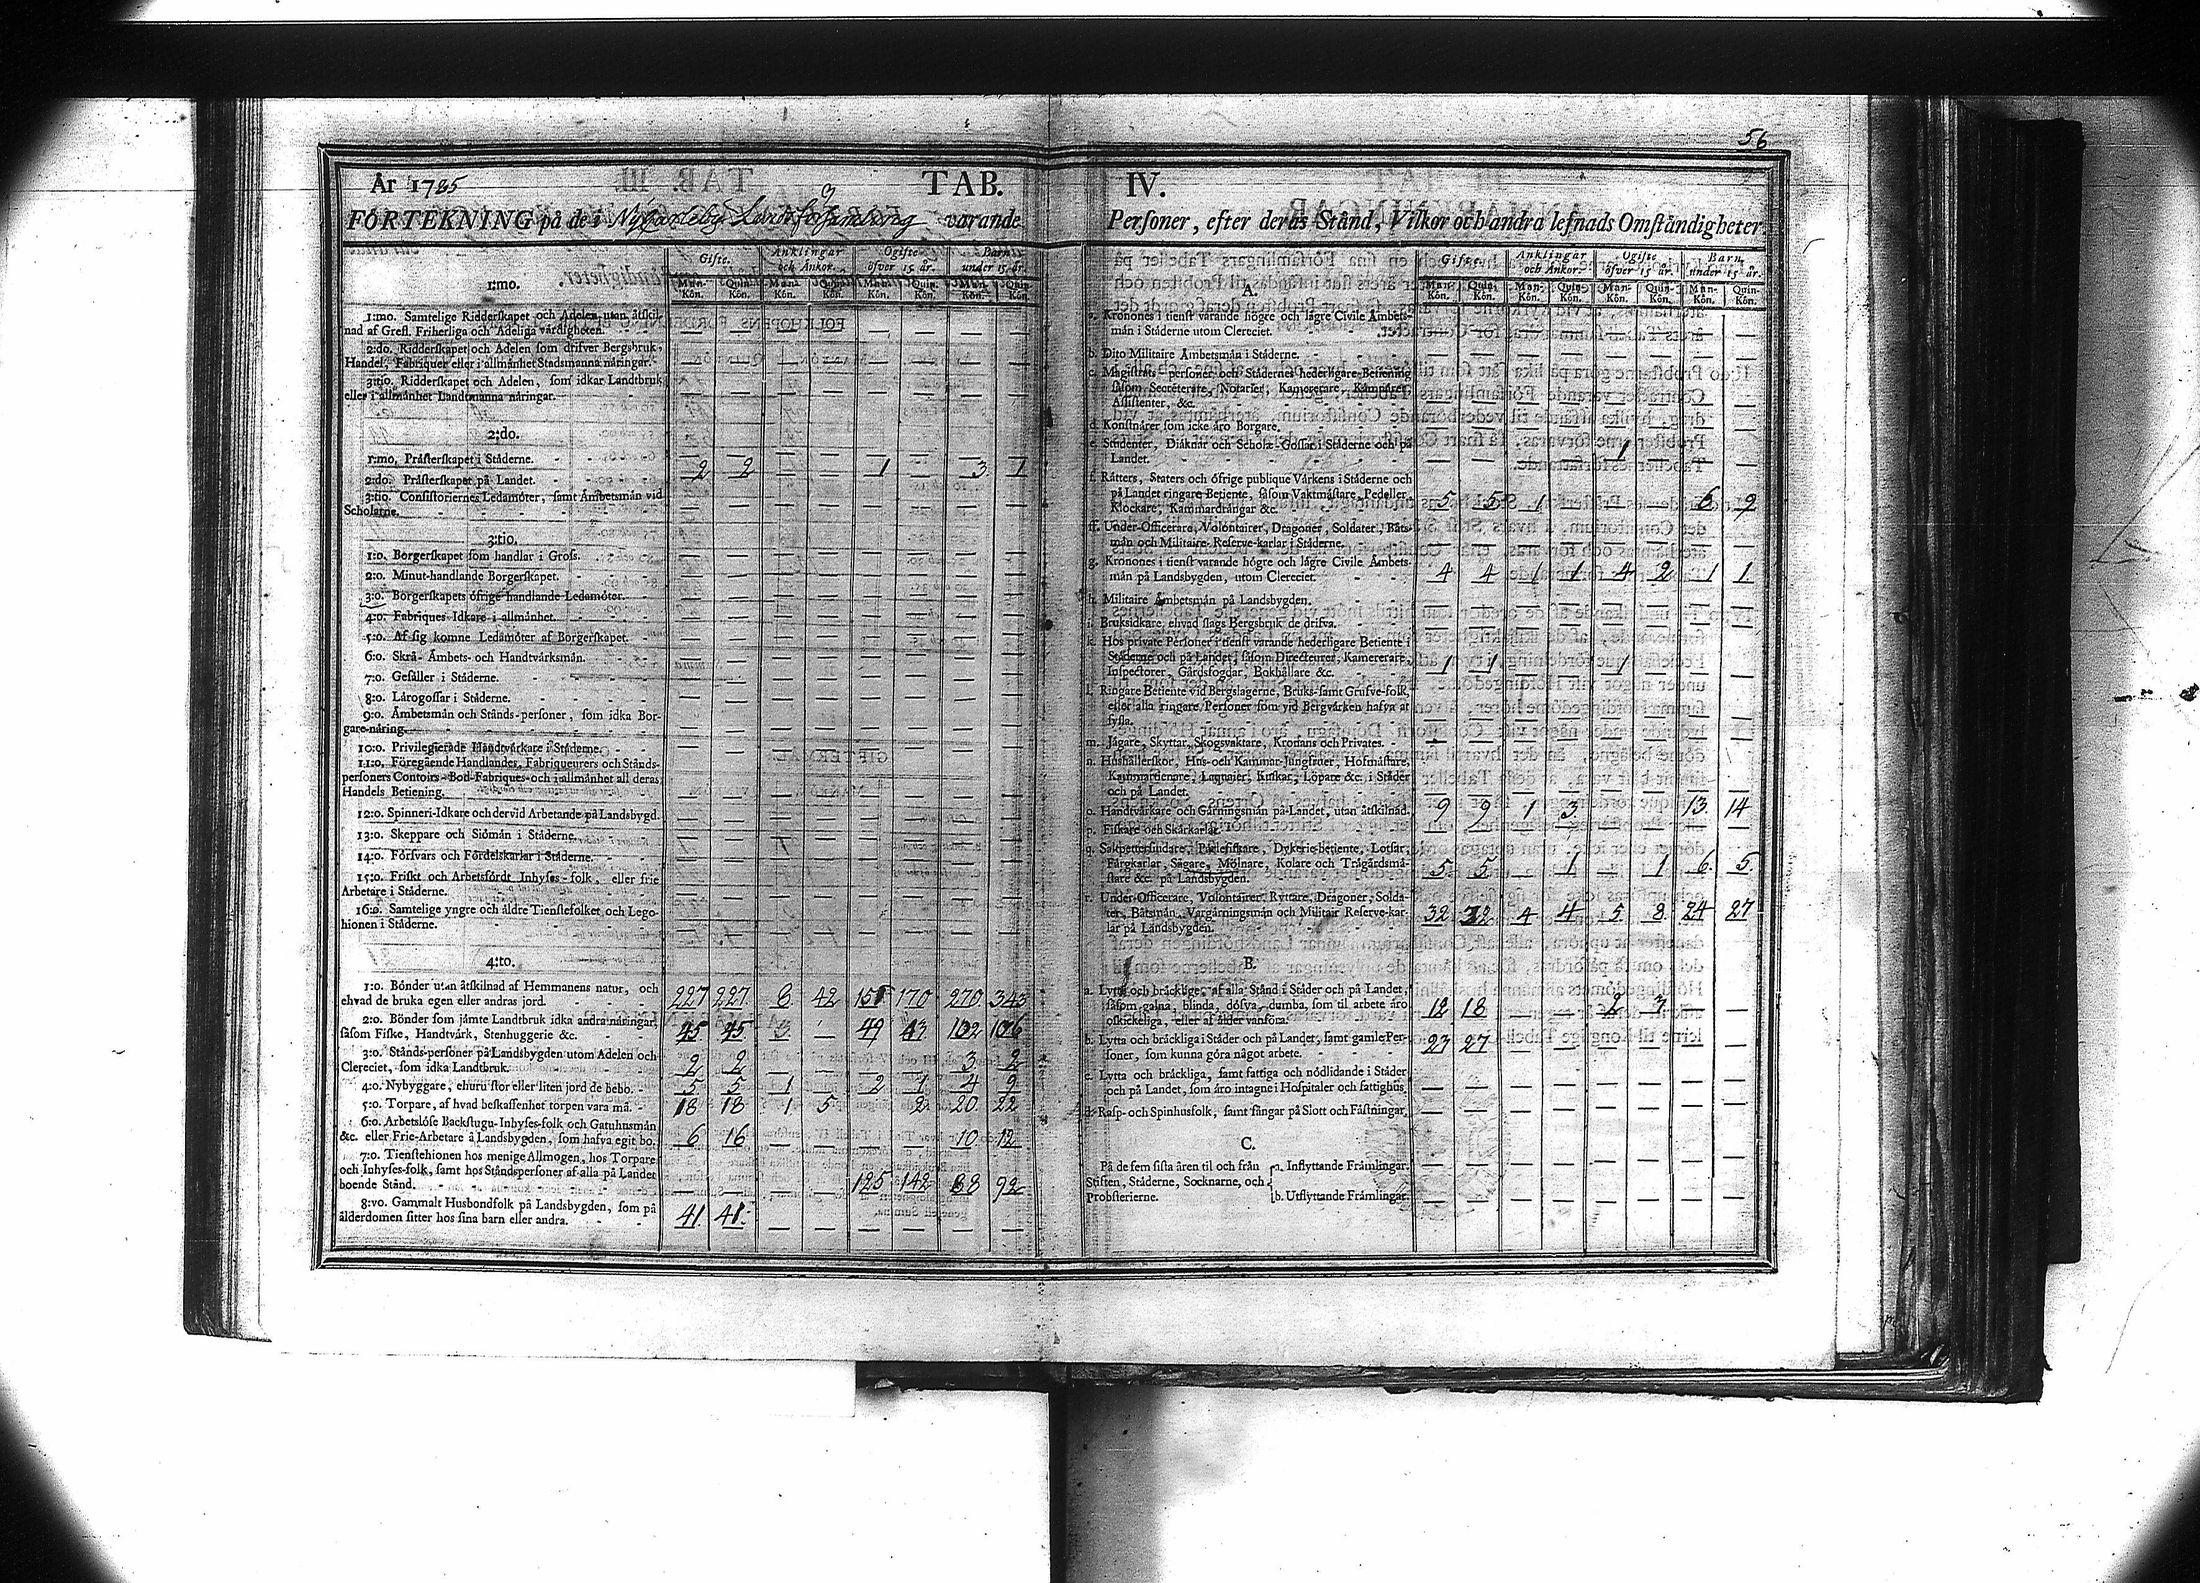 56
År 1785 TAB. IV.
FÖRTEKNING på de i Nykarleby Lands församling varande Personer, efter deras Stånd, Vilkor och andra lefnads Omständigheter.
Gifte. Änklingar och Änkor. Ogifte öfver 15 år. Barn under 15 år.
Man-Kön. Quin-Kön. Man-Kön. Quin-Kön. Man-Kön. Quin-Kön. Man-Kön. Quin-Kön.
1:mo.
1:mo. Samtelige Ridderskapet och Adelen utan åtskil-
nad af Grefl. Friherliga och Adeliga värdigheten. — — — — — — — —
2:do. Ridderskapet och Adelen som drifver Bergsbruk,
Handel, Fabriquer eller i allmänhet Stadsmanna näringar. — — — — — — — —
3:tio. Ridderskapet och Adelen, som idkar Landtbruk
eller i allmänhet Landtmanna näringar. — — — — — — — —
2:do.
1:mo. Prästerskapet i Städerne. — — — — — — — —
2:do. Prästerskapet på Landet. 2 2 — — 1 — 3 1
3:tio. Consistoriernes Ledamöter, samt Ämbetsmän vid
Scholarne. — — — — — — — —
3:tio.
1:o. Borgerskapet som handlar i Gross. — — — — — — — —
2:o. Minut-handlande Borgerskapet. — — — — — — — —
3:o. Borgerskapets öfrige handlande Ledamöter. — — — — — — — —
4:o. Fabriques-Idkare i allmänhet. — — — — — — — —
5:o. Af sig komne Ledamöter af Borgerskapet. — — — — — — — —
6:o. Skrå- Ämbets- och Handtvärksmän. — — — — — — — —
7:o. Gesäller i Städerne. — — — — — — — —
8:o. Lärogossar i Städerne. — — — — — — — —
9:o. Ämbetsmän och Stånds-personer, som idka Bor-
gare-näring. — — — — — — — —
10:o. Privilegierade Handtvärkare i Städerne. — — — — — — — —
11:o. Föregående Handlandes, Fabriqueurers och Stånds-
personers Contoirs- Bod- Fabriques- och i allmänhet all deras
Handels Betiening. — — — — — — — —
12:o. Spinneri-Idkare och dervid Arbetande på Landsbygd. — — — — — — — —
13:o. Skeppare och Siömän i Städerne. — — — — — — — —
14:o. Försvars och Fördelskarlar i Städerne. — — — — — — — —
15:o. Friskt och Arbetsfördt Inhyses-folk, eller frie
Arbetare i Städerne. — — — — — — — —
16:o. Samtelige yngre och äldre Tienstefolket och Lego-
hionen i Städerne. — — — — — — — —
4:to.
1:o. Bönder utan åtskilnad af Hemmanens natur, och
ehvad de bruka egen eller andras jord. 227 227 8 42 151 170 270 343
2:o. Bönder som jämte Landtbruk idka andra näringar,
såsom Fiske, Handtvärk, Stenhuggerie &c. 45 45 3 — 49 43 102 106
3:o. Stånds-personer på Landsbygden utom Adelen och
Clereciet, som idka Landtbruk. 2 2 — — — — 3 2
4:o. Nybyggare, ehuru stor eller liten jord de hebo. 5 5 1 — 2 1 4 9
5:o. Torpare, af hvad beskaffenhet torpen vara må. 18 18 1 5 2 20 22
6:o. Arbetslöse Backstugu- Inhyses-folk och Gatuhusmän
&c. eller Frie-Arbetare å Landsbygden, som hafva egit bo. 6 16 — — — — 10 12
7:o. Tienstehionen hos menige Allmogen, hos Torpare
och Inhyses-folk, samt hos Ståndspersoner af alla på Landet
boende Stånd. — — — — 125 142 68 92
8:vo. Gammalt Husbondfolk på Landsbygden, som på
ålderdomen sitter hos sina barn eller andra. 41 41 — — — — — —
Gifte. Änklingar och Änkor. Ogifte öfver 15 år. Barn under 15 år.
Man-Kön. Quin-Kön. Man-Kön. Quin-Kön. Man-Kön. Quin-Kön. Man-Kön. Quin-Kön.
A.
a. Kronones i tienst varande högre och lägre Civile Ämbets-
män i Städerne utom Clereciet. — — — — — — — —
b. Dito Militaire Ämbetsmän i Städerne. — — — — — — — —
c. Magistrats personer och Städernes hederligare Betiening
såsom Secreterare, Notarier, Kamererare, Kämnärer,
Assistenter, &c. — — — — — — — —
d. Konstnärer som icke äro Borgare. — — — — — — — —
e. Studenter, Diäknar och Scholæ-Gossar i Städerne och på
Landet. — — — — 1 — — —
f. Rätters, Staters och öfrige publique Värkens i Städerne och
på Landet ringare Betiente, såsom Vaktmästare, Pedeller,
Klockare, Kammardrängar &c. 5 5 1 — — — 6 9
ff. Under-Officerare, Volontairer, Dragoner, Soldater, Båts-
män och Militaire-Reserve-karlar i Städerne. — — — — — — — —
g. Kronones i tienst varande högre och lägre Civile Ämbets-
män på Landsbygden, utom Clereciet. 4 4 1 1 4 2 1 1
h. Militaire Ämbetsmän på Landsbygden. — — — — — — — —
i. Bruksidkare, ehvad slags Bergsbruk de drifva. — — — — — — — —
k. Hos private Personer i tienst varande hederligare Betiente i
Städerne och på Landet, såsom Directeurer, Kamererare,
Inspectorer, Gårdsfogdar, Bokhållare &c. 1 1 — — 1 — — —
l. Ringare Betiente vid Bergslagerne, Bruks- samt Grufve-folk,
eller alla ringare Personer som vid Bergvärken hafva at
syssla. — — — — — — — —
m. Jägare, Skyttar, Skogsvaktare, Kronans och Privates. — — — — — — — —
n. Hushållerskor, Hus- och Kammar-Jungfruer, Hofmästare,
Kammardenare, Laquaier, Kuskar, Löpare &c. i Städer
och på Landet. — — — — — — — —
o. Handtvärkare och Gärningsmän på Landet, utan åtskilnad. 9 9 1 3 — — 13 14
p. Fiskare och Skärkarlar. — — — — — — — —
q. Salpettersiudare, Pärlefiskare, Dykerie-betiente, Lotsar,
Färgkarlar, Sågare, Mölnare, Kolare och Trägårdsmä-
stare &c. på Landsbygden. 5 5 — 1 — 1 6 5
r. Under-Officerare, Volontairer, Ryttare, Dragoner, Solda-
ter, Båtsmän, Vargärningsmän och Militair Reserve-kar-
lar på Landsbygden. 32 32 4 4 5 8 24 27
B.
a. Lytta och bräcklige, af alla Stånd i Städer och på Landet,
såsom galna, blinda, döfva, dumba, som til arbete äro
oskickeliga, eller af ålder vanföra. 12 18 — — 2 3 — —
b. Lytta och bräckliga i Städer och på Landet, samt gamle Per-
soner, som kunna göra något arbete. 23 27 — — — — — —
c. Lytta och bräckliga, samt fattiga och nödlidande i Städer
och på Landet, som äro intagne i Hospitaler och fattighus. — — — — — — — —
d. Rasp- och Spinhusfolk, samt fångar på Slott och Fästningar. — — — — — — — —
C.
På de fem sista åren til och från a. Inflyttande Främlingar. — — — — — — — —
Stiften, Städerne, Socknarne, och
Probsterierne. b. Utflyttande Främlingar. — — — — — — — —